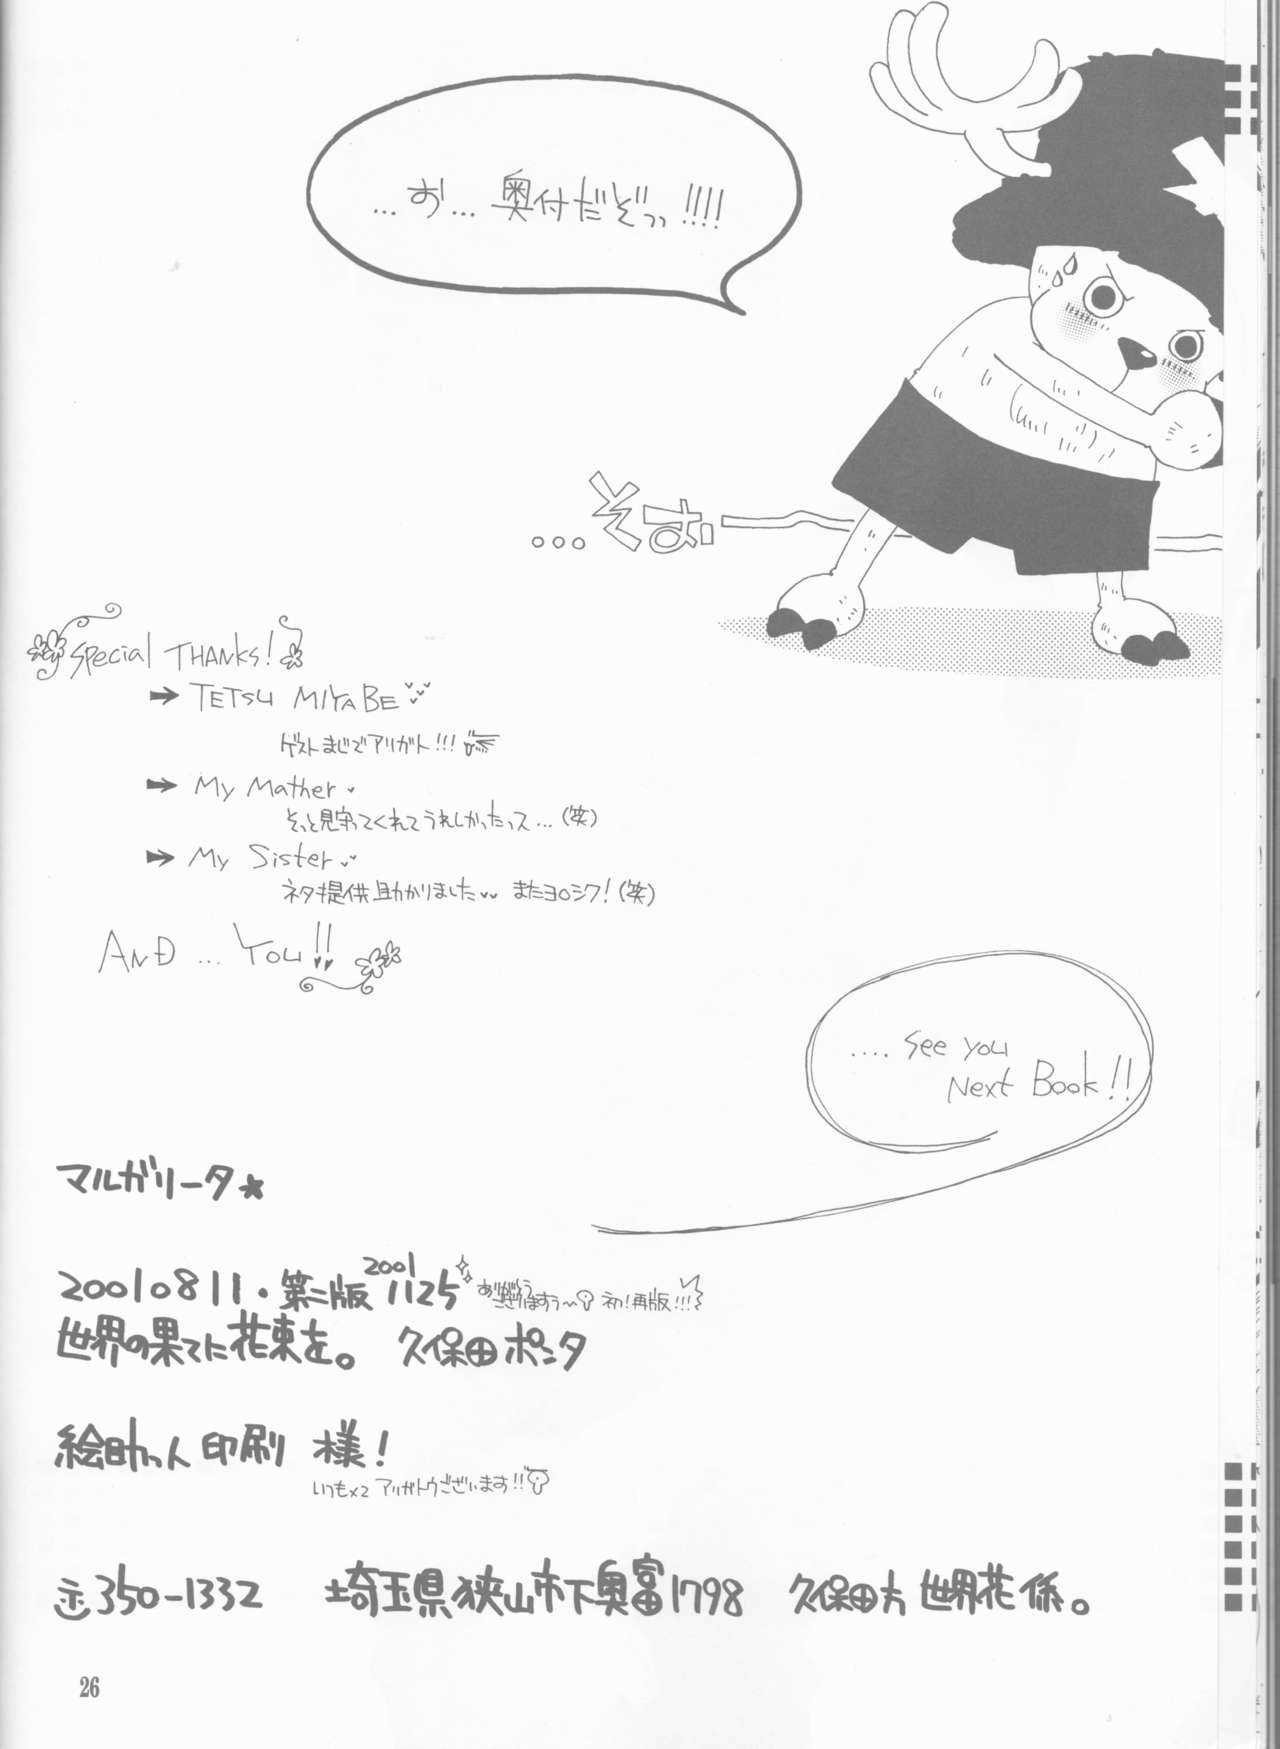 …お…奥付だぞっっ!!!!
…そぉ
Special THANKS!
→ TETSU MIYABE
ゲストまじでアリガト!!!
→ My Mather
そっと見守ってくれてうれしかったっス…(笑)
→ My Sister
ネタ提供助かりました またヨロシク!(笑)
AND … YOU!!
.... See you
Next Book!!
マルガリータ★
20010811・第二版 2001 1125 ありがとう
ございますぅ~ 初!再版!!!
世界の果てに花束を。 久保田ポンタ
絵助っ人印刷 様!
いつも×2 アリガトウございます!!
〒350-1332 埼玉県狭山市下奥富1798 久保田方 世界花係。
26